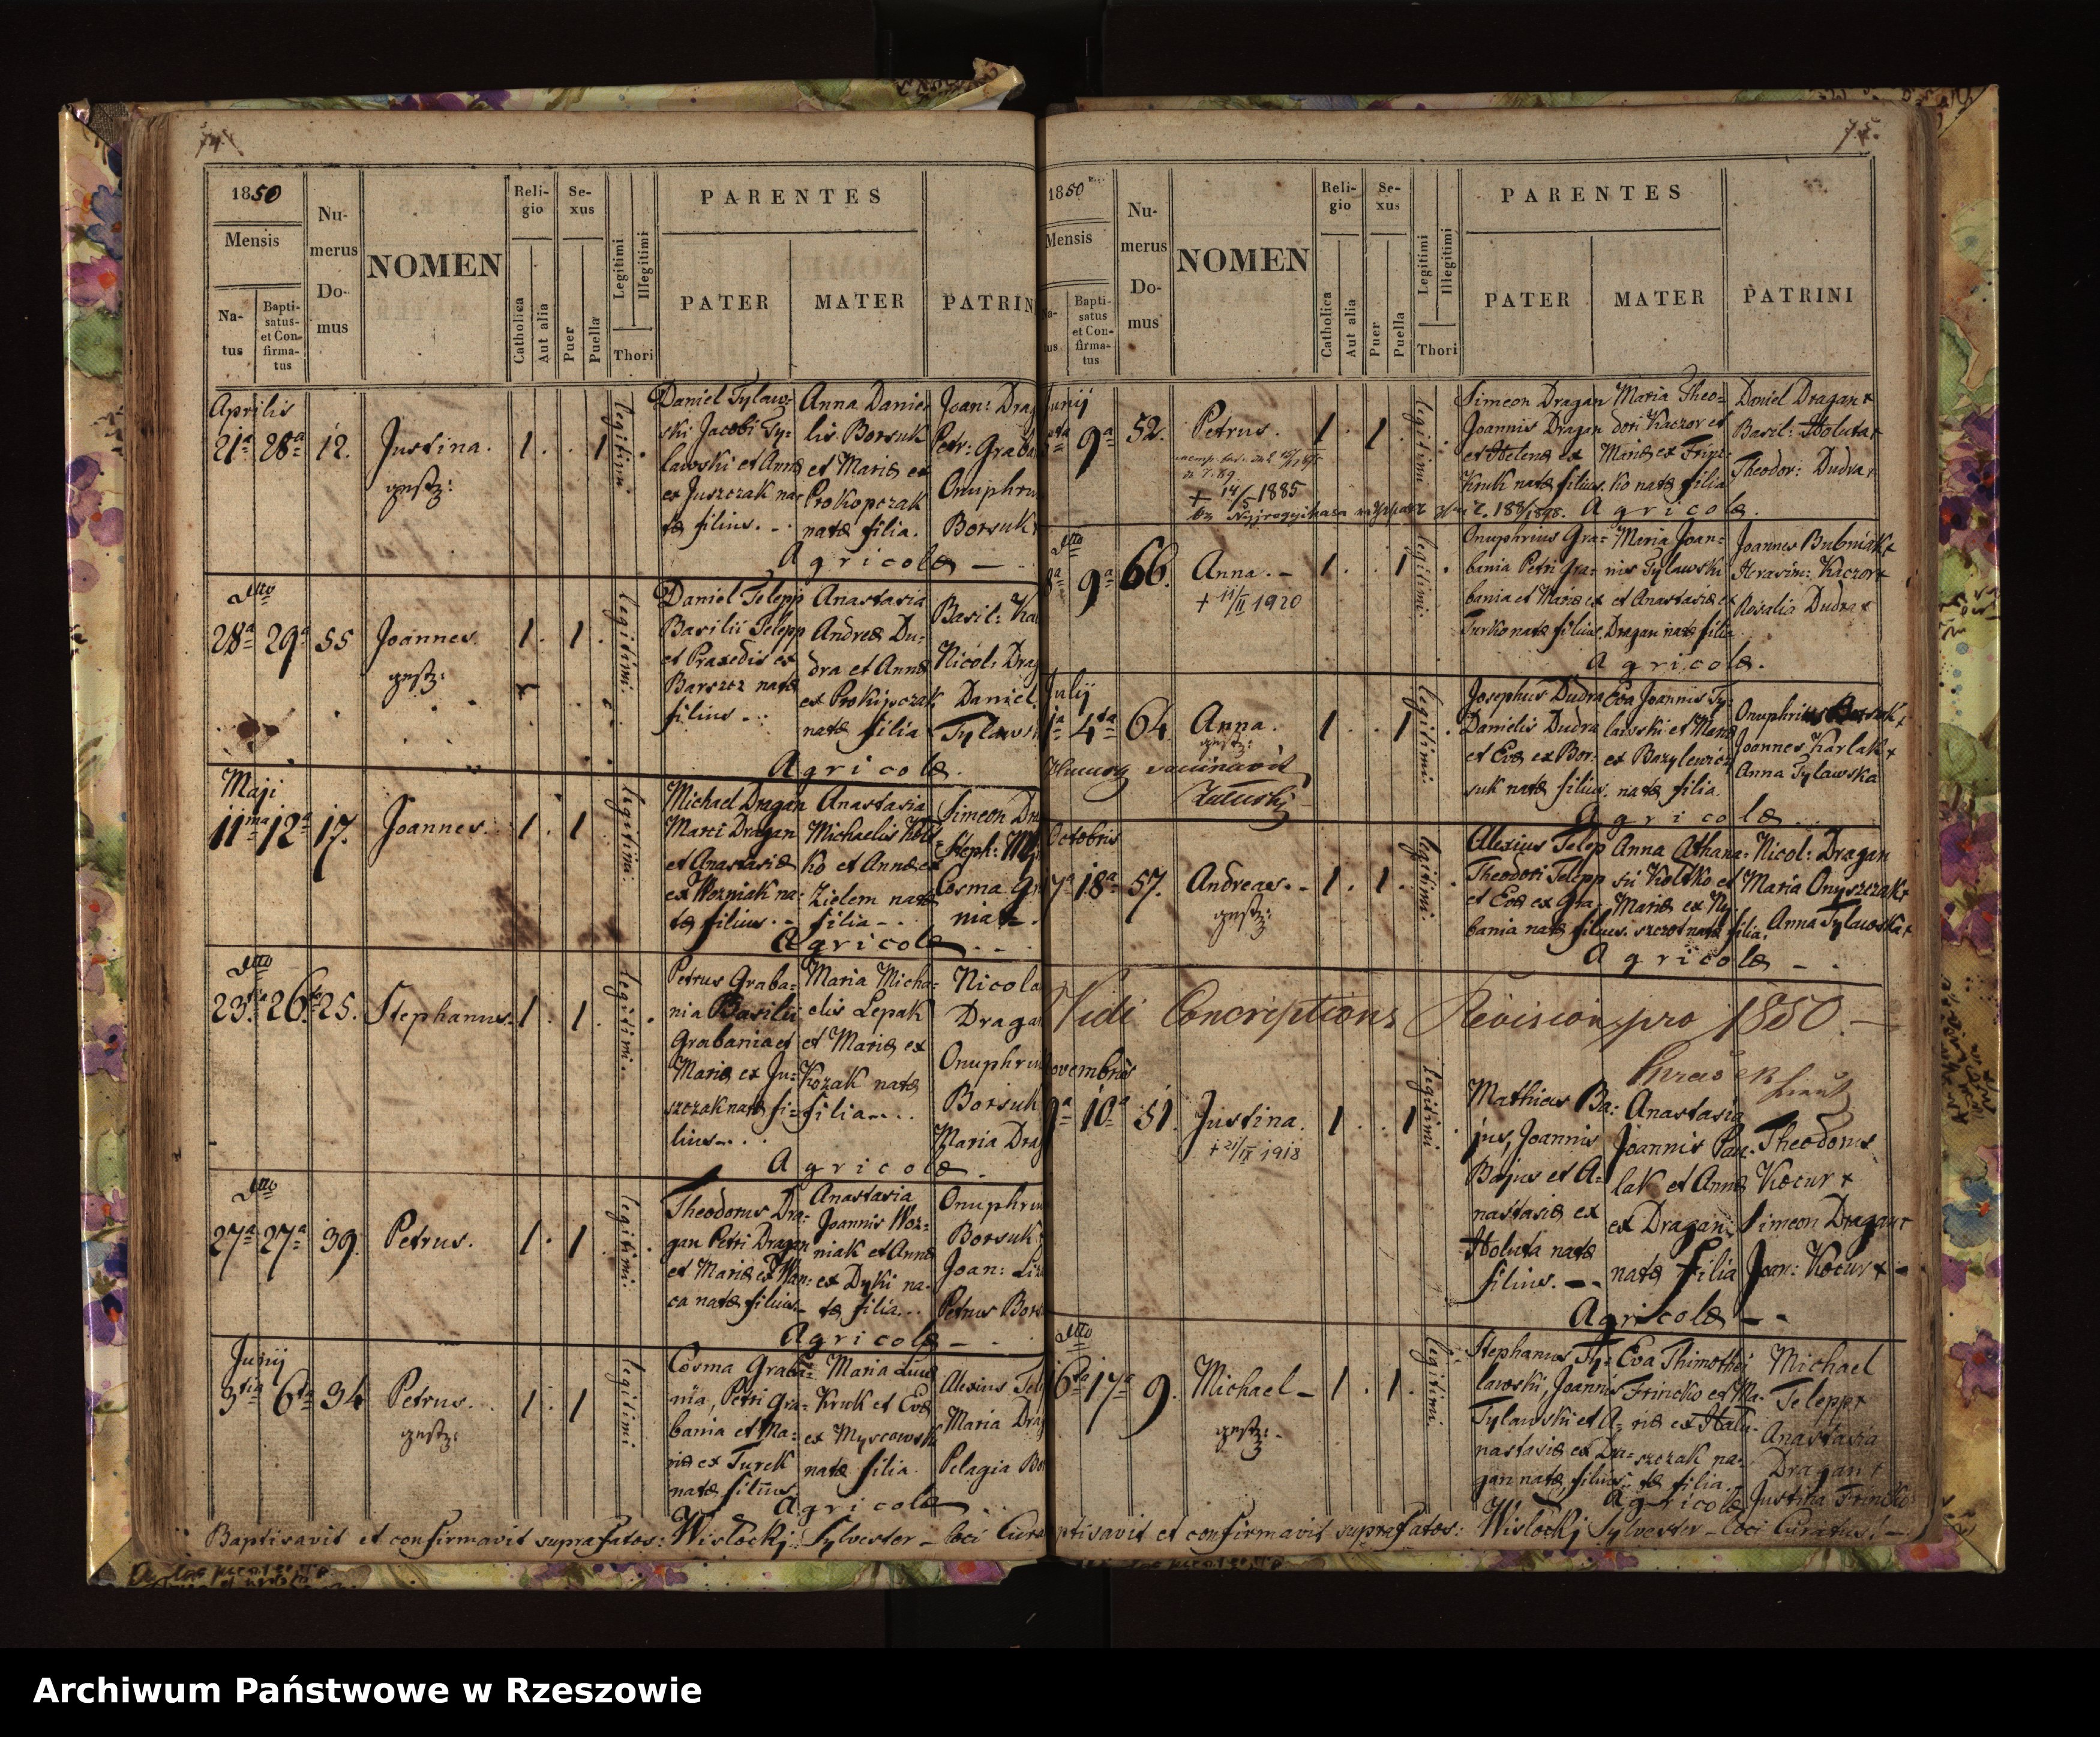 74.
1850
Mensis
Na-
tus
Bapti-
satus
et Con-
firma-
tus
Nu-
merus
Do-
mus
NOMEN
Reli-
gio
Catholica
Aut alia
Se-
xus
Puer
Puella
Legitimi
Illegitimi
Thori
PARENTES
PATER
MATER
PATRIN
Aprilis
21ª 28ª 12. Justina. 1 . . 1
legitimi
Daniel Tylaw-
ski Jacobi Ty-
lawski et Annæ
ex Juszczak na-
tæ filius. -
Anna Danie-
lis Borsuk
et Mariæ ex
Prokopczak
natæ filia.
Joan: Drag
Petr: Graba
Onuphriu
Borsuk
Agricolæ —
dtto
28ª 29ª 55 Joannes. 1 . 1 .
legitimi.
Daniel Telepp
Basilii Telepp
et Praxedis ex
Barszcz natæ
filius.
Anastasia
Andreæ Du-
dra et Annæ
ex Prokipczak
natæ filia
Basil: Ka
Nicol: Drag
Daniel
Tylaws
Agricolæ.
Maji
11ma 12ª 17. Joannes. 1 . 1
legitimi.
Michael Dragan
Marci Dragan
et Anastasiæ
ex Wozniak na-
tæ filius. -
Anastasia
Michaelis Kolt-
ko et Annæ ex
Zielem natæ
filia -
Simeon Dra
Steph:
Cosma Gra
nia
Agricolæ
dtto
23tia 26ta 25. Stephanus. 1 . 1 .
legitimi.
Petrus Graba-
nia Basilii
Grabania et
Mariæ ex Ju-
szczak natæ fi-
lius -
Maria Micha-
elis Lepak
et Mariæ ex
Kozak natæ
filia
Nicola
Dragan
Onuphriu
Borsuk
Maria Drag
Agricolæ
dtto
27ª 27ª 39. Petrus. 1 . 1
legitimi.
Theodorus Dra-
gan Petri Dragan
et Mariæ ex Wan-
ca natæ filius -
Anastasia
Joannis Woz-
niak et Annæ
ex Dyki na-
tæ filia.
Onuphriu
Borsuk
Joan:
Petrus Bors
Agricolæ —
Junij
3tia 6ta 34 Petrus. 1 . 1
legitimi
Cosma Graba-
nia, Petri Gra-
bania et Ma-
riæ ex Turek
natæ filius
Maria Lucæ
Kruk et Evæ
ex Myscowski
natæ filia
Alexius Tele
Maria Drag
Pelagia Bor
Agricolæ
Baptisavit et confirmavit suprafatos: Wisłockj Sylvester - loci Cura
75.
1850
Mensis
Na-
tus
Bapti-
satus
et Con-
firma-
tus
Nu-
merus
Do-
mus
NOMEN
Reli-
gio
Catholica
Aut alia
Se-
xus
Puer
Puella
Legitimi
Illegitimi
Thori
PARENTES
PATER
MATER
PATRINI
Junij
9ª 52. Petrus. 1 . 1 .
+ 14/5 1885
legitimi
Simeon Dragan
Joannis Dragan
et Helenæ ex
Kruk natæ filius.
Maria Theo-
dori Kaczor et
Mariæ ex Frin-
ko natæ filia
Daniel Dragan +
Basil: Holuta +
Theodor: Dudra +
Agricolæ.
dtto
8ª 9ª 66. Anna. - 1 . . 1 .
+ 11/II 1920
legitimi.
Onuphrius Gra-
bania Petri Gra-
bania et Mariæ ex
Turko natæ filius.
Maria Joan-
nis Tylawski
et Anastasiæ ex
Dragan natæ filia
Joannes Bubniak +
Harasim: Kaczor +
Rosalia Dudra +
Agricolæ.
Julij
1ª 4ta 64 Anna. 1 . . 1 .
Załuskj
legitimi.
Josephus Dudra
Danielis Dudra
et Evæ ex Bor-
suk natæ filius.
Eva Joannis Ty-
lawski et Mariæ
ex Bazylewicz
natæ filia.
Onuphrius Borsuk +
Joannes Karlak +
Anna Tylawska
Agricolæ
Octobris
7ª 18ª 57. Andreas. - 1 . 1 .
legitimi
Alexius Telep
Theodori Telepp
et Evæ ex Gra-
bania natæ filius.
Anna Athana-
sii Koltko et
Mariæ ex Ny-
szczot natæ filia.
Nicol: Dragan
Maria Onyszczak +
Anna Tylawska +
Agricolæ -
Vidi Concriptions Revision pro 1850. —
Novembris
9ª 10ª 51. Justina. 1 . . 1 .
+ 21/IX 1918
legitimi
Mathias Ba-
jus, Joannis
Bajus et A-
nastasiæ ex
Holuta natæ
filius. -
Anastasia
Joannis Pau-
lak et Annæ
ex Dragan
natæ filia
Theodorus
Kocur +
Simeon Dragan +
Joan: Kocur + -
Agricolæ -
dtto
16ta 17ª 9. Michael - 1 . 1 .
legitimi.
Stephanus Ty-
lawski, Joannis
Tylawski et A-
nastasiæ ex Dra-
gan natæ, filius.
Eva Thimothei
Frincko et Ma-
riæ ex Halu-
szczak na-
tæ filia.
Michael
Telepp +
Anastasia
Dragan +
Justina Frincko
Agricolæ
Baptisavit et confirmavit suprafatos: Wisłockj Sylvester - loci Curatus! -
Archiwum Państwowe w Rzeszowie